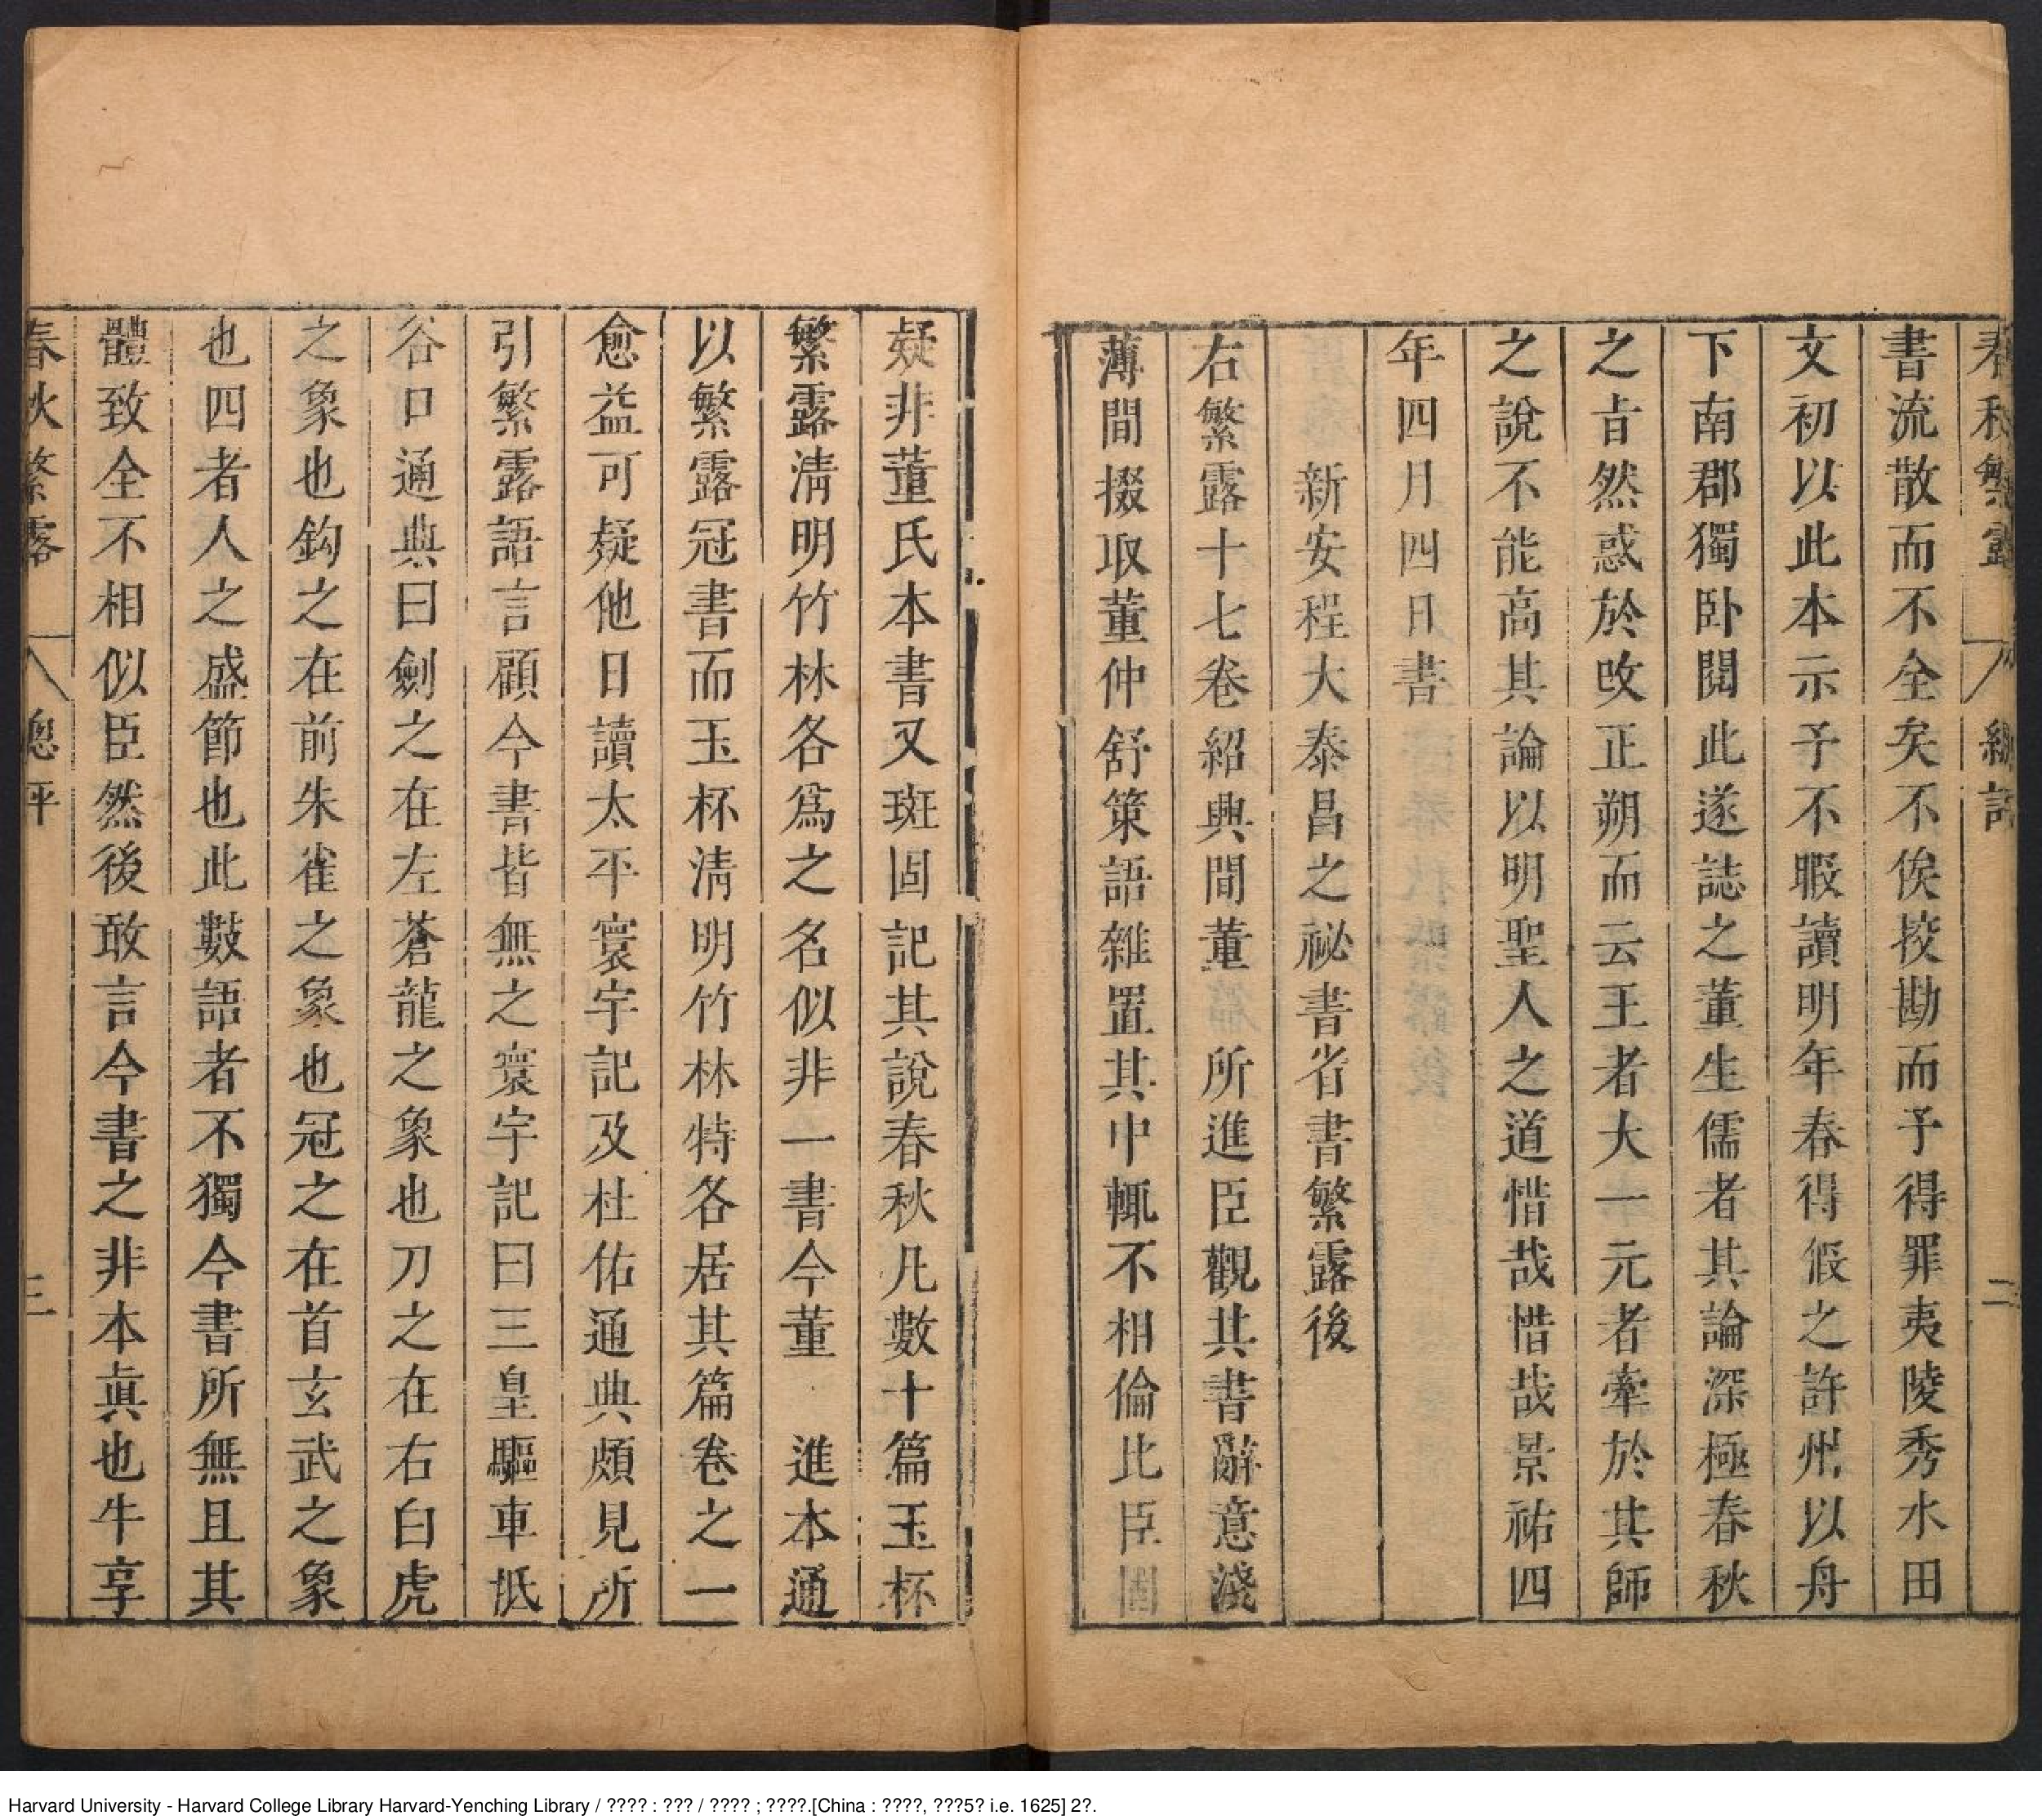 春秋繁露 總評 二
書流散而不全矣不俟挍勘而予得罪夷陵秀水田
文初以此本示予不暇讀明年春得假之許州以舟
下南郡獨卧閱此遂誌之董生儒者其論深極春秋
之旨然惑於攺正朔而云王者大一元者牽於其師
之說不能高其論以明聖人之道惜哉惜哉景祐四
年四月四日書
新安程大泰昌之祕書省書繁露後
右繁露十七卷紹興間董 所進臣觀其書辭意淺
薄間掇取董仲舒策語雜置其中輒不相倫比臣固
疑非董氏本書又班固記其說春秋凡數十篇玉杯
繁露清明竹林各爲之名似非一書今董 進本通
以繁露冠書而玉杯清明竹林特各居其篇卷之一
愈益可疑他日讀太平寰宇記及杜佑通典頗見所
引繁露語言顧今書皆無之寰宇記曰三皇驅車抵
谷口通典曰劍之在左蒼龍之象也刀之在右白虎
之象也鈎之在前朱雀之象也冠之在首玄武之象
也四者人之盛節也此數語者不獨今書所無且其
體致全不相似臣然後敢言今書之非本眞也牛享
春秋繁露 總評 三
Harvard University - Harvard College Library Harvard-Yenching Library / ???? : ??? / ???? ; ????.[China : ????, ???5? i.e. 1625] 2?.